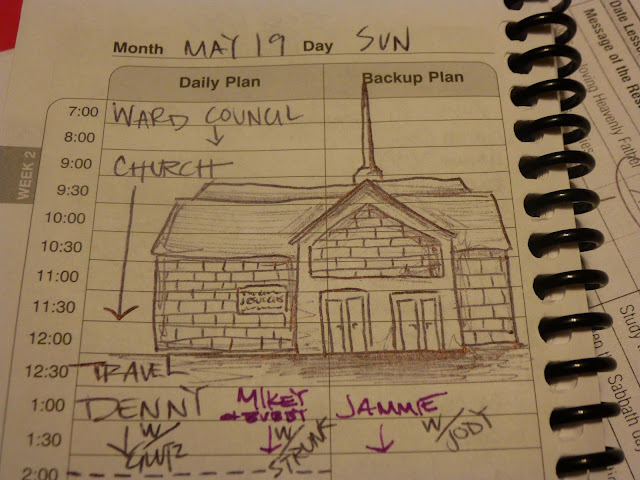 Month MAY 19 Day SUN
Daily Plan Backup Plan
WEEK 2
7:00 WARD COUNCIL
8:00
9:00 CHURCH
9:30
10:00
10:30
11:00
11:30
12:00
12:30 TRAVEL
1:00 DENNY MIKEY JAMMIE
1:30 W/ W/ STRUNK W/ JODY
2:00
Dale Lesso
Message of the Res
oving Heavenly Father
Study
Sabbath day